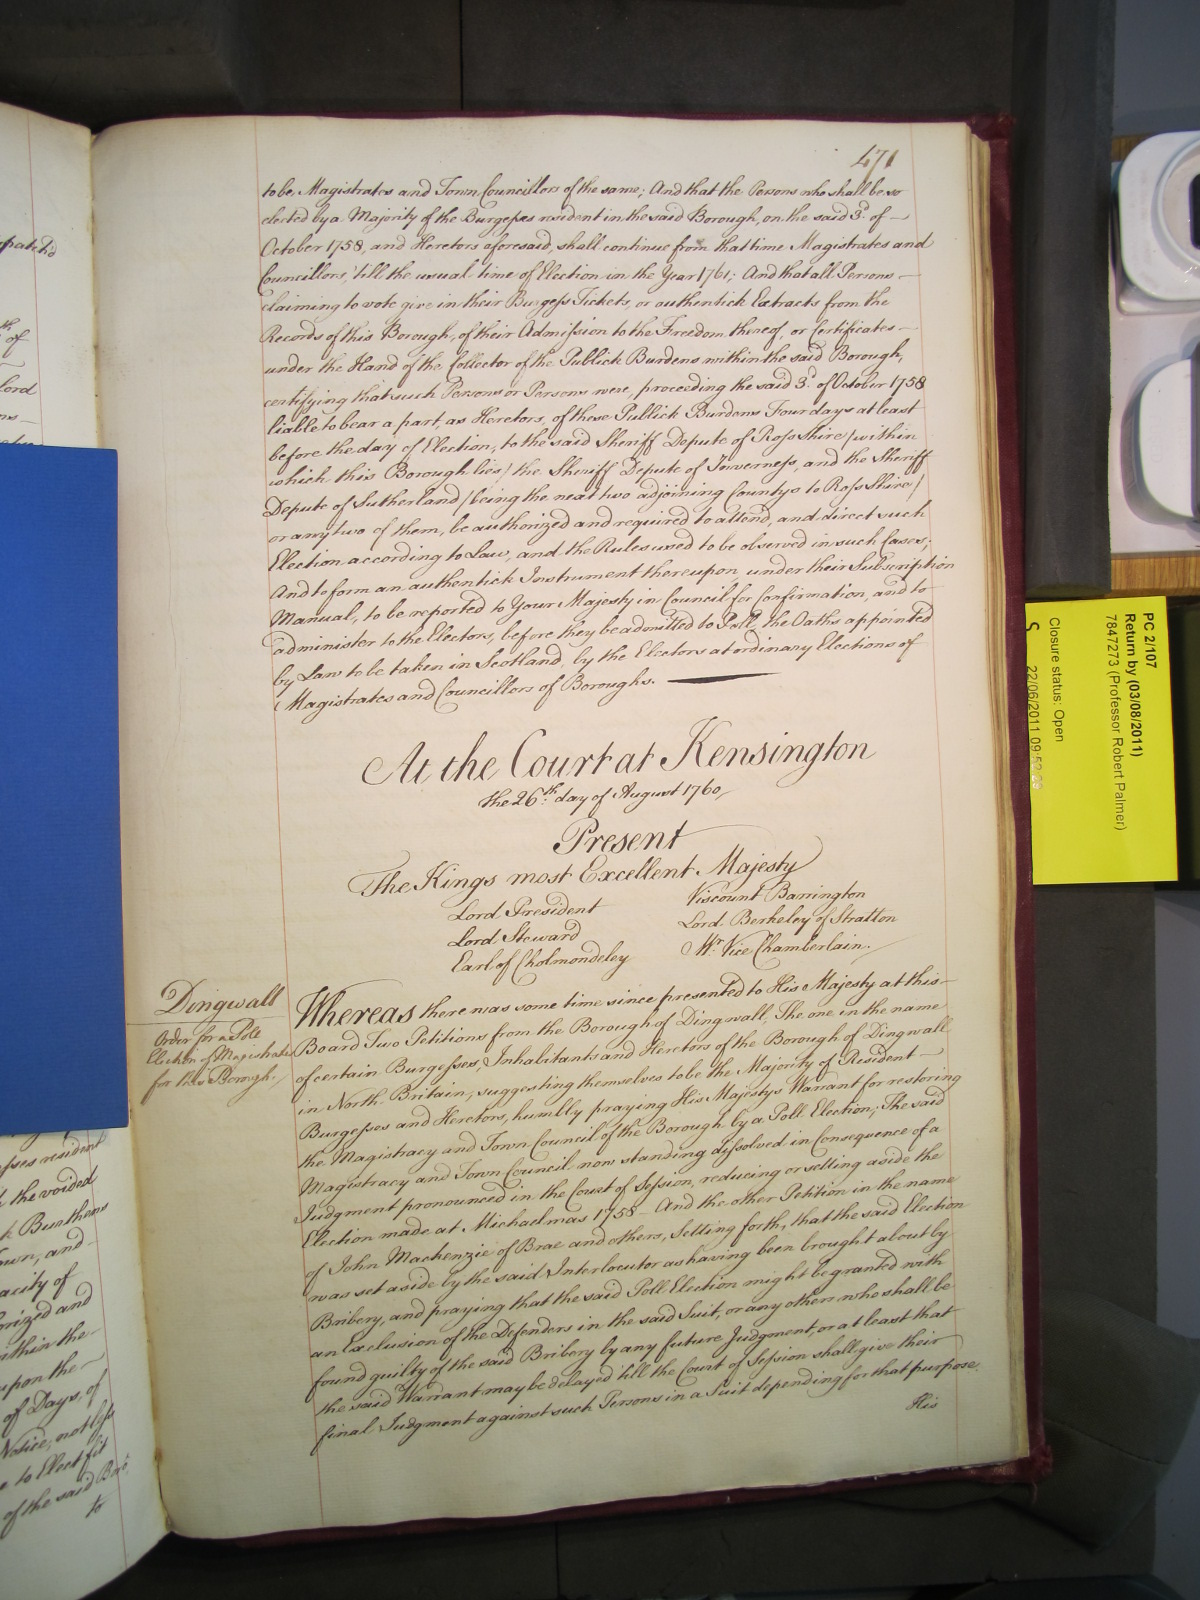 471
to be Magistrates and Town Councillors of the same; And that the Persons who shall be so
elected by a Majority of the Burgesses resident in the said Borough, on the said 3.d of
October 1758, and Heretors aforesaid, shall continue from that time Magistrates and
Councillors, 'till the usual time of Election in the Year 1761; And that all Persons
claiming to vote give in their Burgess Tickets, or authentick Extracts from the
Records of this Borough, of their Admission to the Freedom thereof, or Certificates
under the Hand of the Collector of the Publick Burdens within the said Borough,
certifying that such Persons or Persons were, proceeding the said 3.d of October 1758
liable to bear a part, as Heretors, of these Publick Burdens Four days at least
before the day of Election, to the said Sheriff Depute of Ross Shire /within
which this Borough lies/ the Sheriff Depute of Inverness, and the Sheriff
Depute of Sutherland /being the next two adjoining Countys to Ross Shire/
or any two of them, be authorized and required to attend, and direct such
Election according to Law, and the Rules used to be observed in such Cases;
And to form an authentick Instrument thereupon, under their Subscription
Manual, to be reported to Your Majesty in Council for Confirmation, and to
administer to the Electors, before they be admitted to Poll, the Oaths appointed
by Law to be taken in Scotland, by the Electors at ordinary Elections of
Magistrates and Councillors of Boroughs.
At the Court at Kensington
the 26th day of August 1760
Present
The Kings most Excellent Majesty
Lord President
Lord Steward
Earl of Cholmondeley
Viscount Barrington
Lord Berkeley of Stratton
Mr. Vice Chamberlain.
Dingwall
Order for a Pole
Election of Magistrates
for this Borough.
Whereas there was some time since presented to His Majesty at this
Board Two Petitions from the Borough of Dingwall, The one in the name
of certain Burgesses, Inhabitants and Heretors of the Borough of Dingwall
in North Britain, suggesting themselves to be the Majority of Resident
Burgesses and Heretors, humbly praying His Majestys Warrant for restoring
the Magistracy and Town Council of the Borough by a Poll Election; The said
Magistracy and Town Council now standing dissolved in Consequence of a
Judgment pronounced in the Court of Session, reducing or setting aside the
Election made at Michaelmas 1758 - And the other Petition in the name
of John Mackenzie of Brae and others, Setting forth, that the said Election
was set aside by the said Interlocutor as having been brought about by
Bribery, and praying that the said Poll Election might be granted with
an Exclusion of the Defenders in the said Suit, or any others who shall be
found guilty of the said Bribery by any future Judgment, or at least that
the said Warrant may be delayed till the Court of Session shall give their
final Judgment against such Persons in a Suit depending for that purpose.
His
th of
lord
esses resident
the voided
k Burthens
own, and
acity of
orized and
within the
upon the
of Days, of
Notice, not less
to Elect fit
of the said
to
PC 2/107
Return by (03/08/2011)
7847273 (Professor Robert Palmer)
Closure status: Open
S 22/06/2011 09:52:26